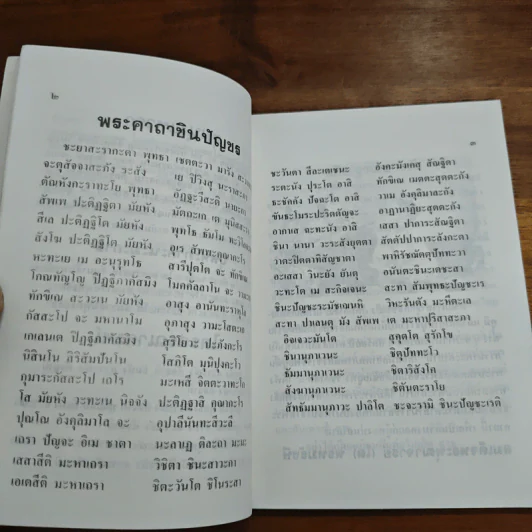 ๒
พระคาถาชินปัญชร
ชะยาสะรากะตา พุทธา เชตตะวา มารัง
จะตุสัจจาสะภัง ระสัง เย ปิวิงสุ นะราสะภา
ตัณหังกะราทะโย พุทธา อัฏฐะวีสะติ นายะกา
สัพเพ ปะติฏฐิตา มัยหัง มัตถะเก เต มุนิสสะรา
สีเส ปะติฏฐิโต มัยหัง พุทโธ ธัมโม
สังโฆ ปะติฏฐิโต มัยหัง อุเร สัพพะคุณากะโร
หะทะเย เม อะนุรุทโธ สารีปุตโต จะ ทักขิเณ
โกณฑัญโญ ปิฏฐิภาคัสมิง โมคคัลลาโน จะ
ทักขิเณ สะวะเน มัยหัง อาสุง อานันทะราหุโล
กัสสะโป จะ มะหานาโม อุภาสุง วามะโสตะเก
เกเสนเต ปิฏฐิภาคัสมิง สุริโยวะ ปะภังกะโร
นิสินโน สิริสัมปันโน โสภิโต มุนิปุงคะโว
กุมาระกัสสะโป เถโร มะเหสี จิตตะวาทะโก
โส มัยหัง วะทะเน นิจจัง ปะติฏฐาสิ คุณากะโร
ปุณโณ อังคุลิมาโล จะ อุปาลีนันทะสีวะลี
เถรา ปัญจะ อิเม ชาตา นะลาเฏ ติละกา มะมะ
เสสาสีติ มะหาเถรา วิชิตา ชินะสาวะกา
เอเตสีติ มะหาเถรา ชิตะวันโต ชิโนระสา
๓
ชะวันตา สีละเตเชนะ อังคะมังเคสุ สัณฐิตา
ระตะนัง ปุระโต อาสิ ทักขิเณ เมตตะสุตตะกัง
ธะชัคคัง ปัจฉะโต อาสิ วาเม อังคุลิมาละกัง
ขันธะโมระปะริตตัญจะ อาฏานาฏิยะสุตตะกัง
อากาเส ฉะทะนัง อาสิ เสสา ปาการะสัณฐิตา
ชินา นานา วะระสังยุตตา สัตตัปปาการะลังกะตา
วาตะปิตตาทิสัญชาตา พาหิรัชฌัตตุปัททะวา
อะเสสา วินะยัง ยันตุ อนันตะชินะเตชะสา
วะทะโต เม สะกิจเจนะ สะทา สัมพุทธะปัญชะเร
ชินะปัญชะระมัชฌัมหิ วิหะรันตัง มะหีตะเล
สะทา ปาเลนตุ มัง สัพเพ เต มะหาปุริสาสะภา
อิจเจวะมันโต สุคุตโต สุรักโข
ชินานุภาเวนะ ชิตุปัททะโว
ธัมมานุภาเวนะ ชิตาริสังโค
สังฆานุภาเวนะ ชิตันตะราโย
สัทธัมมานุภาวะ ปาลิโต ชะจะรามิ ชินะปัญชะเรติ